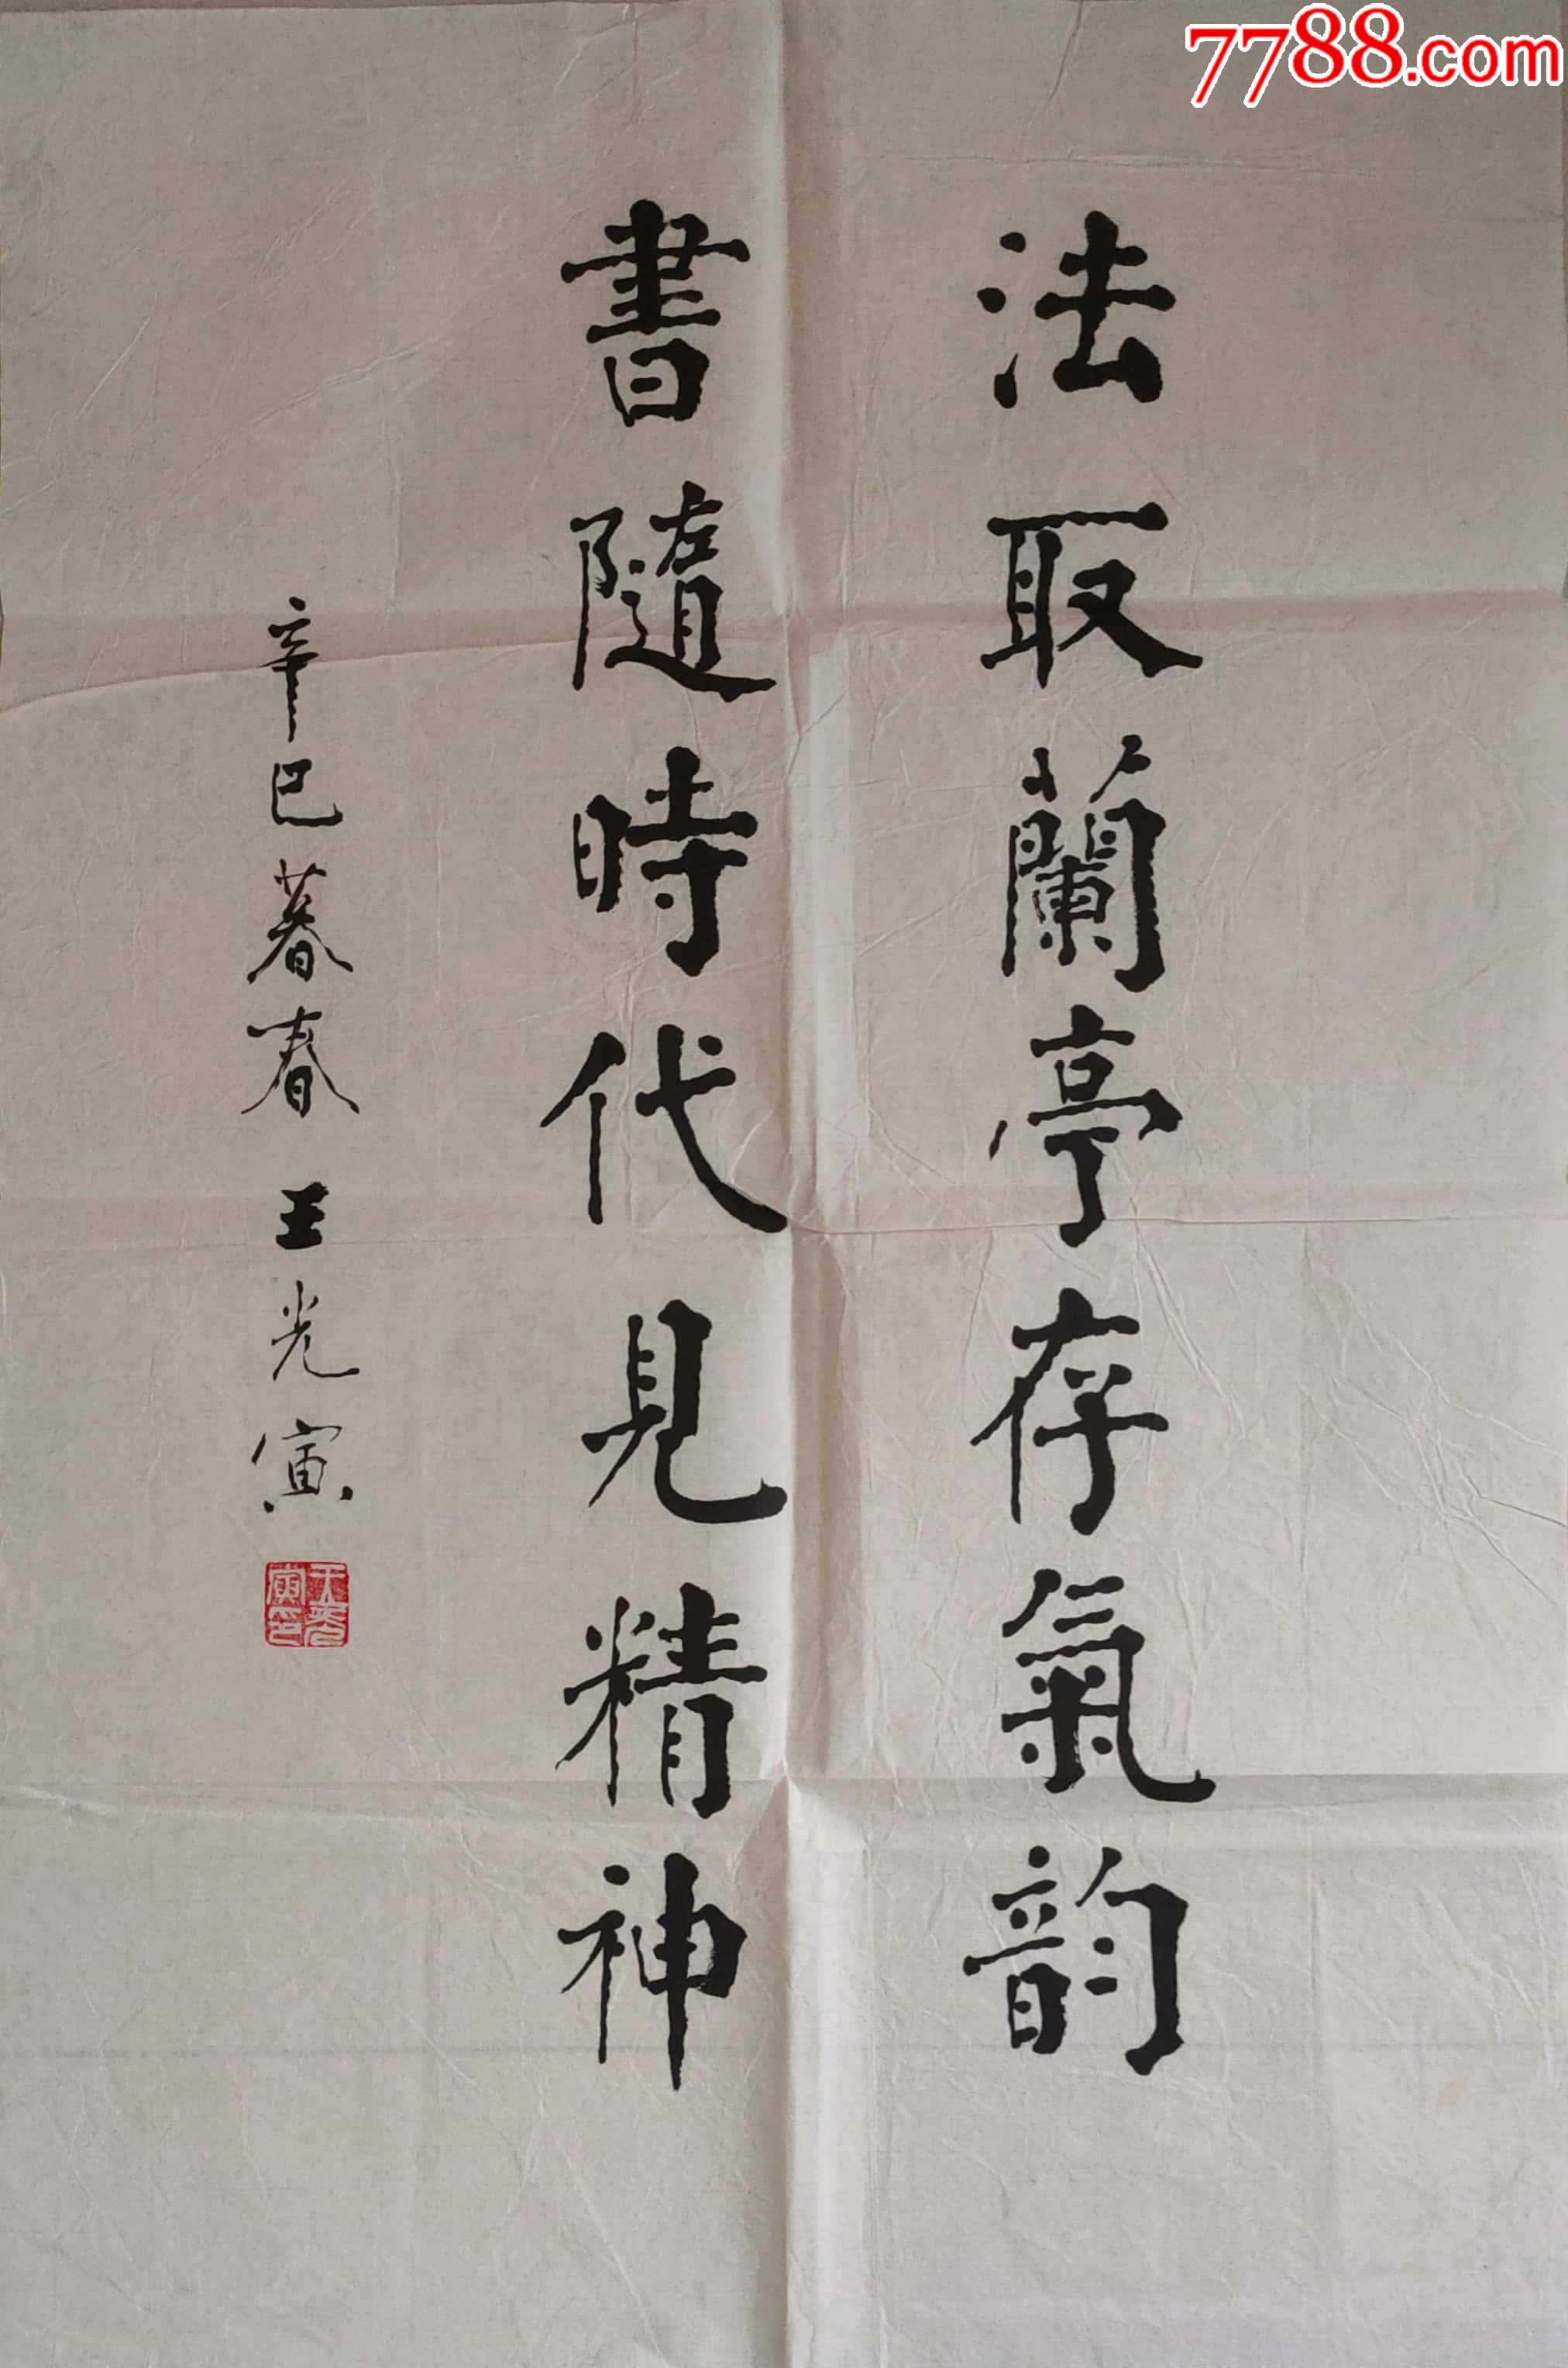 7788.com
法取蘭亭存氣韵
書隨時代見精神
辛巳暮春 王光寅
王光寅印